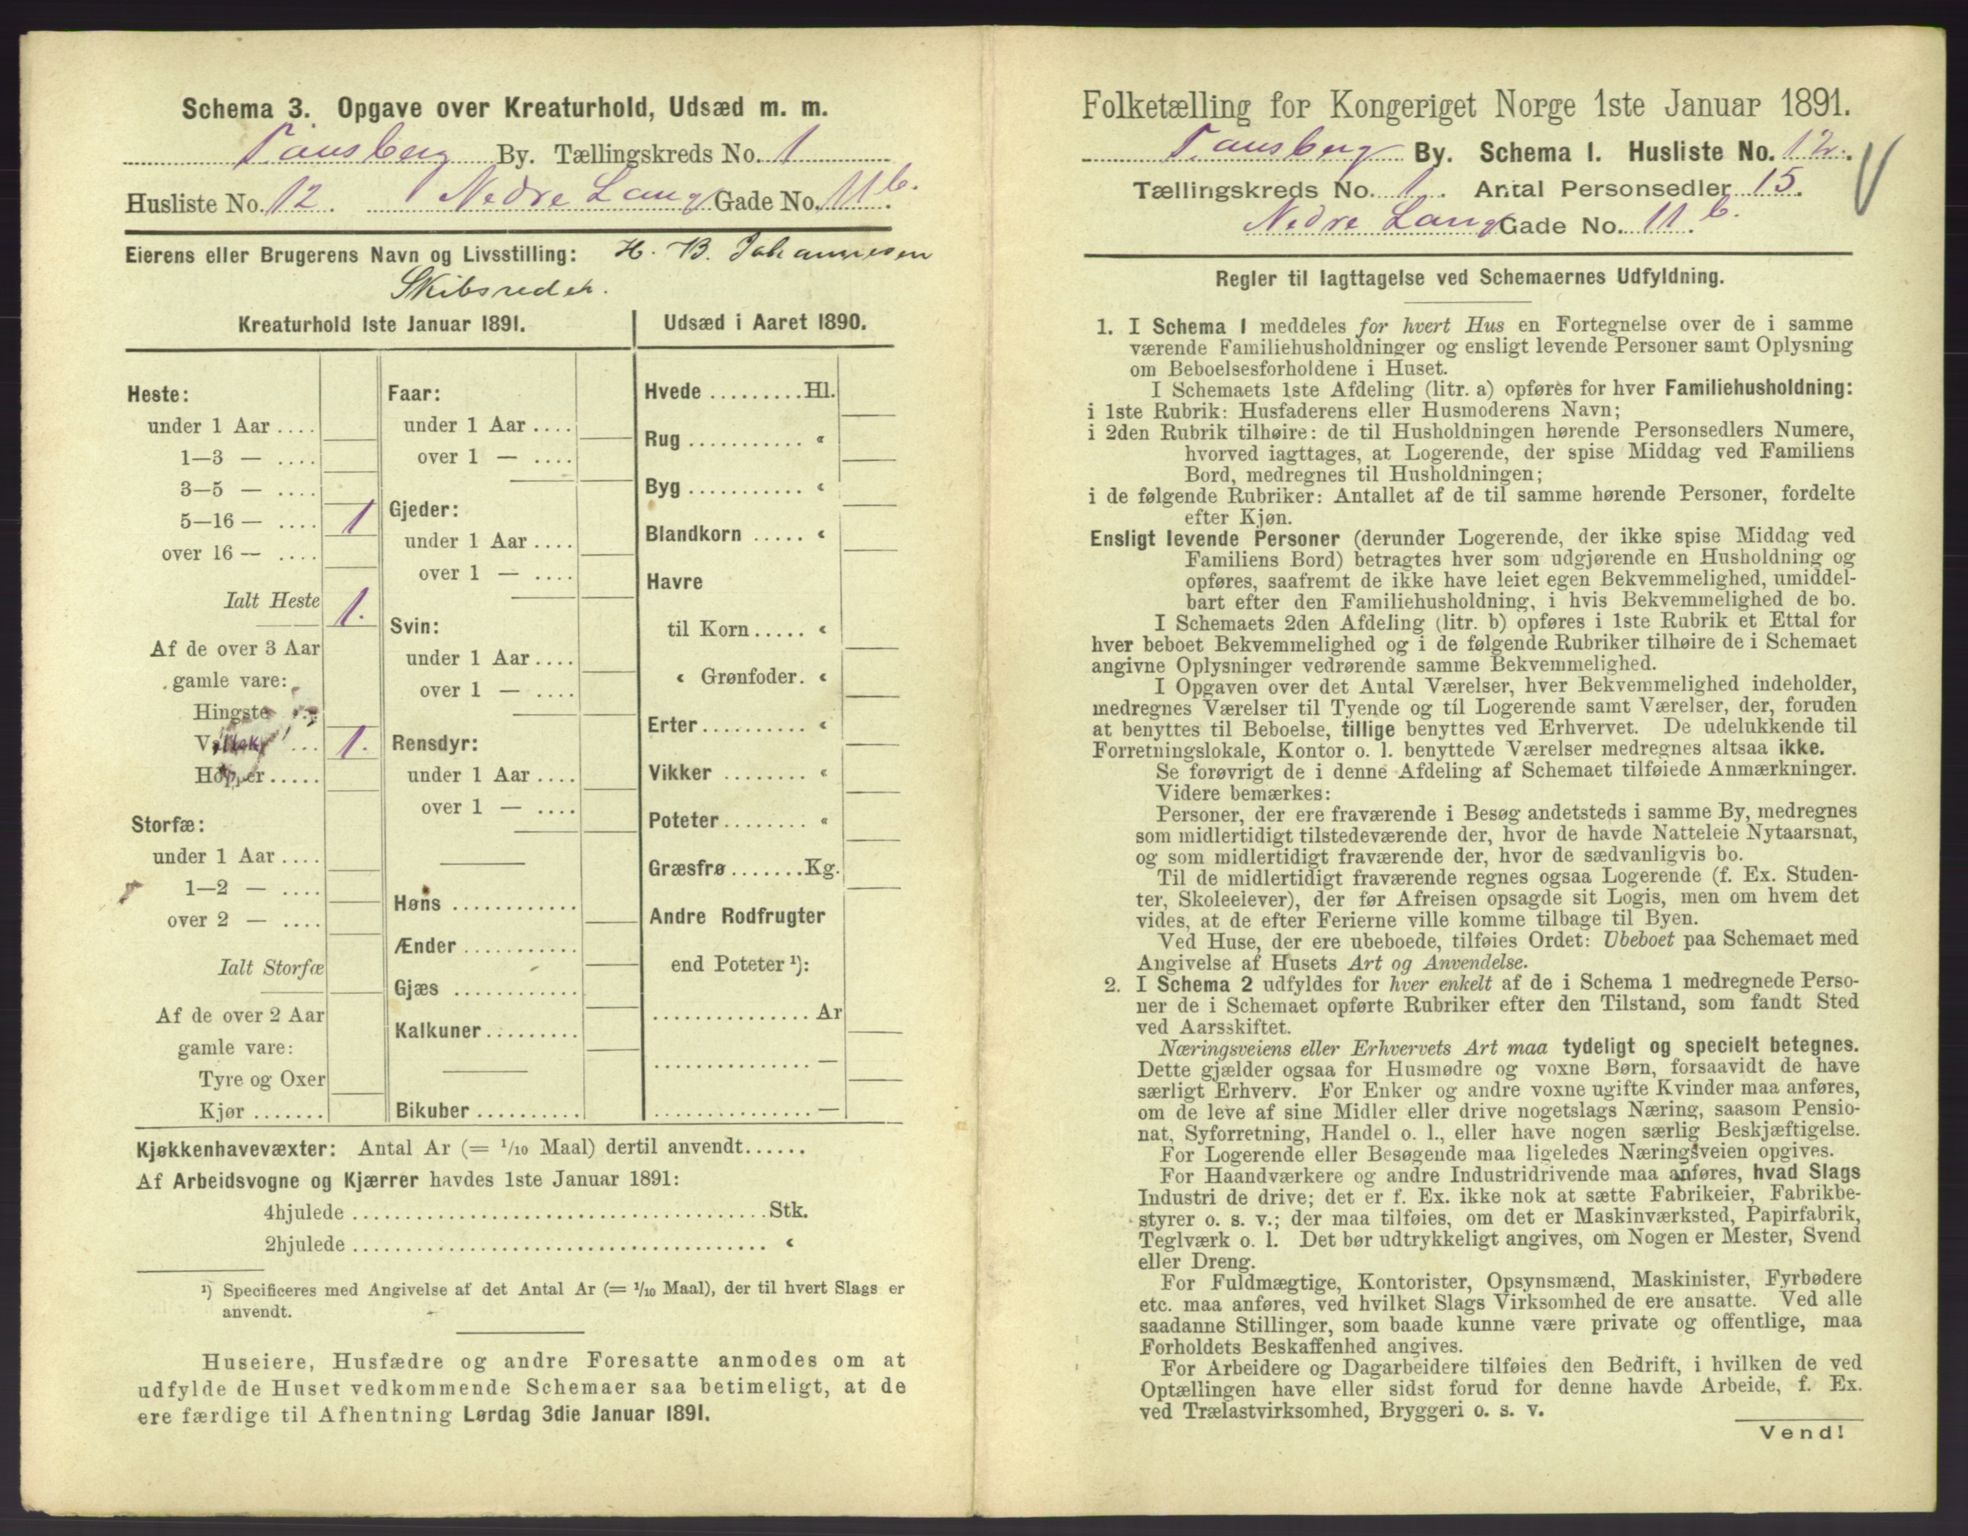 Schema 3. Opgave over Kreaturhold, Udsæd m. m.
Tönsberg By. Tællingskreds No. 1
Husliste No. 12. Nedre Lang Gade No. 11 b.
Eierens eller Brugerens Navn og Livsstilling: H. B. Johannesen
Skibsreder.
Kreaturhold 1ste Januar 1891.
Heste:
under 1 Aar ....
1—3 — ....
3—5 — ....
5—16 — .... 1
over 16 — ....
Ialt Heste 1.
Af de over 3 Aar
gamle vare:
Hingste ...
Vallak ... 1.
Hopper.....
Storfæ:
under 1 Aar ....
1—2 — ....
over 2 — ....
Ialt Storfæ
Af de over 2 Aar
gamle vare:
Tyre og Oxer
Kjør .......
Faar:
under 1 Aar ....
over 1 — ....
Gjeder:
under 1 Aar ....
over 1 — ....
Svin:
under 1 Aar ....
over 1 — ....
Rensdyr:
under 1 Aar ....
over 1 — ....
Høns ............
Ænder ...........
Gjæs ............
Kalkuner .........
Bikuber ..........
Udsæd i Aaret 1890.
Hvede .........Hl.
Rug ........... «
Byg ........... «
Blandkorn ..... «
Havre
til Korn ..... «
« Grønfoder. «
Erter ......... «
Vikker ........ «
Poteter ........ «
Græsfrø .......Kg.
Andre Rodfrugter
end Poteter ¹):
............... Ar
............... —
............... —
Kjøkkenhavevæxter: Antal Ar (= 1/10 Maal) dertil anvendt......
Af Arbeidsvogne og Kjærrer havdes 1ste Januar 1891:
4hjulede ....................................... Stk.
2hjulede ....................................... «
¹) Specificeres med Angivelse af det Antal Ar (= 1/10 Maal), der til hvert Slags er
anvendt.
Huseiere, Husfædre og andre Foresatte anmodes om at
udfylde de Huset vedkommende Schemaer saa betimeligt, at de
ere færdige til Afhentning Lørdag 3die Januar 1891.
Folketælling for Kongeriget Norge 1ste Januar 1891.
Tönsberg By. Schema 1. Husliste No. 12.
Tællingskreds No. 1. Antal Personsedler 15.
Nedre Lang Gade No. 11 b.
Regler til Iagttagelse ved Schemaernes Udfyldning.
1. I Schema 1 meddeles for hvert Hus en Fortegnelse over de i samme
værende Familiehusholdninger og ensligt levende Personer samt Oplysning
om Beboelsesforholdene i Huset.
I Schemaets 1ste Afdeling (litr. a) opføres for hver Familiehusholdning:
i 1ste Rubrik: Husfaderens eller Husmoderens Navn;
i 2den Rubrik tilhøire: de til Husholdningen hørende Personsedlers Numere,
hvorved iagttages, at Logerende, der spise Middag ved Familiens
Bord, medregnes til Husholdningen;
i de følgende Rubriker: Antallet af de til samme hørende Personer, fordelte
efter Kjøn.
Ensligt levende Personer (derunder Logerende, der ikke spise Middag ved
Familiens Bord) betragtes hver som udgjørende en Husholdning og
opføres, saafremt de ikke have leiet egen Bekvemmelighed, umiddel-
bart efter den Familiehusholdning, i hvis Bekvemmelighed de bo.
I Schemaets 2den Afdeling (litr. b) opføres i 1ste Rubrik et Ettal for
hver beboet Bekvemmelighed og i de følgende Rubriker tilhøire de i Schemaet
angivne Oplysninger vedrørende samme Bekvemmelighed.
I Opgaven over det Antal Værelser, hver Bekvemmelighed indeholder,
medregnes Værelser til Tyende og til Logerende samt Værelser, der, foruden
at benyttes til Beboelse, tillige benyttes ved Erhvervet. De udelukkende til
Forretningslokale, Kontor o. l. benyttede Værelser medregnes altsaa ikke.
Se forøvrigt de i denne Afdeling af Schemaet tilføiede Anmærkninger.
Videre bemærkes:
Personer, der ere fraværende i Besøg andetsteds i samme By, medregnes
som midlertidigt tilstedeværende der, hvor de havde Natteleie Nytaarsnat,
og som midlertidigt fraværende der, hvor de sædvanligvis bo.
Til de midlertidigt fraværende regnes ogsaa Logerende (f. Ex. Studen-
ter, Skoleelever), der før Afreisen opsagde sit Logis, men om hvem det
vides, at de efter Ferierne ville komme tilbage til Byen.
Ved Huse, der ere ubeboede, tilføies Ordet: Ubeboet paa Schemaet med
Angivelse af Husets Art og Anvendelse.
2. I Schema 2 udfyldes for hver enkelt af de i Schema 1 medregnede Perso-
ner de i Schemaet opførte Rubriker efter den Tilstand, som fandt Sted
ved Aarsskiftet.
Næringsveiens eller Erhvervets Art maa tydeligt og specielt betegnes.
Dette gjælder ogsaa for Husmødre og voxne Børn, forsaavidt de have
særligt Erhverv. For Enker og andre voxne ugifte Kvinder maa anføres,
om de leve af sine Midler eller drive nogetslags Næring, saasom Pensio-
nat, Syforretning, Handel o. l., eller have nogen særlig Beskjæftigelse.
For Logerende eller Besøgende maa ligeledes Næringsveien opgives.
For Haandværkere og andre Industridrivende maa anføres, hvad Slags
Industri de drive; det er f. Ex. ikke nok at sætte Fabrikeier, Fabrikbe-
styrer o. s. v.; der maa tilføies, om det er Maskinværksted, Papirfabrik,
Teglværk o. l. Det bør udtrykkeligt angives, om Nogen er Mester, Svend
eller Dreng.
For Fuldmægtige, Kontorister, Opsynsmænd, Maskinister, Fyrbødere
etc. maa anføres, ved hvilket Slags Virksomhed de ere ansatte. Ved alle
saadanne Stillinger, som baade kunne være private og offentlige, maa
Forholdets Beskaffenhed angives.
For Arbeidere og Dagarbeidere tilføies den Bedrift, i hvilken de ved
Optællingen have eller sidst forud for denne havde Arbeide, f. Ex.
ved Trælastvirksomhed, Bryggeri o. s. v.
Vend!